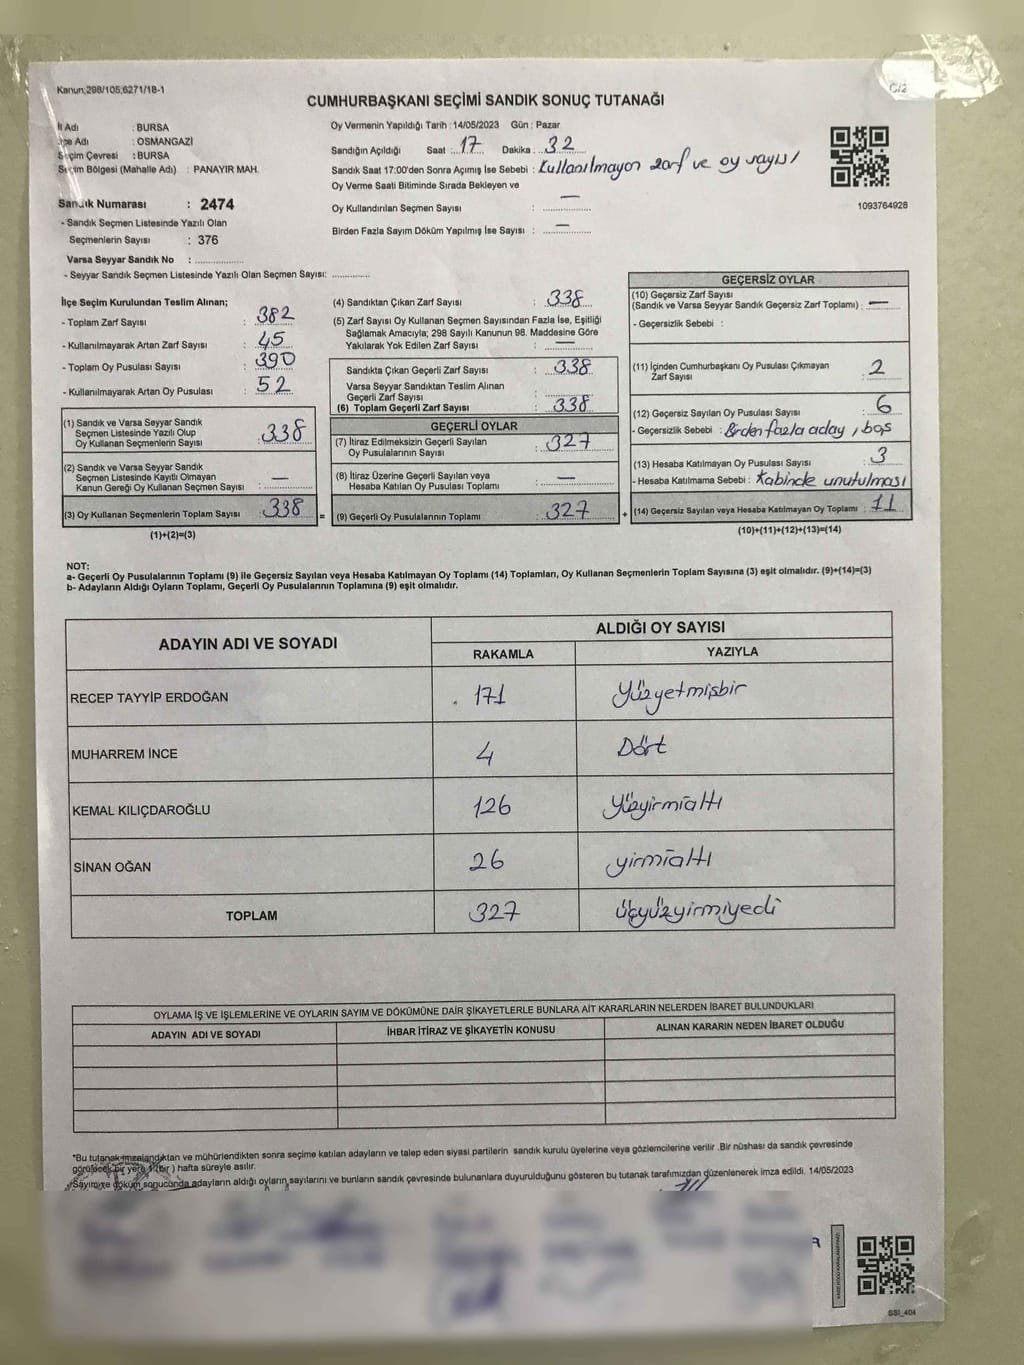 Kanun;298/105,6271/18-1
C/2
CUMHURBAŞKANI SEÇİMİ SANDIK SONUÇ TUTANAĞI
İl Adı : BURSA
İlçe Adı : OSMANGAZİ
Seçim Çevresi : BURSA
Seçim Bölgesi (Mahalle Adı) : PANAYIR MAH.
Sandık Numarası : 2474
- Sandık Seçmen Listesinde Yazılı Olan
Seçmenlerin Sayısı : 376
Varsa Seyyar Sandık No :
- Seyyar Sandık Seçmen Listesinde Yazılı Olan Seçmen Sayısı:
Oy Vermenin Yapıldığı Tarih : 14/05/2023 Gün : Pazar
Sandığın Açıldığı Saat : 17 Dakika : 32
Sandık Saat 17:00'den Sonra Açımış İse Sebebi : Kullanılmayan zarf ve oy sayısı
Oy Verme Saati Bitiminde Sırada Bekleyen ve
Oy Kullandırılan Seçmen Sayısı : —
Birden Fazla Sayım Döküm Yapılmış İse Sayısı : —
1093764928
İlçe Seçim Kurulundan Teslim Alınan;
- Toplam Zarf Sayısı : 382
- Kullanılmayarak Artan Zarf Sayısı : 45
- Toplam Oy Pusulası Sayısı : 390
- Kullanılmayarak Artan Oy Pusulası : 52
(1) Sandık ve Varsa Seyyar Sandık
Seçmen Listesinde Yazılı Olup
Oy Kullanan Seçmenlerin Sayısı : 338
(2) Sandık ve Varsa Seyyar Sandık
Seçmen Listesinde Kayıtlı Olmayan
Kanun Gereği Oy Kullanan Seçmen Sayısı : —
(3) Oy Kullanan Seçmenlerin Toplam Sayısı : 338
(1)+(2)=(3)
=
(4) Sandıktan Çıkan Zarf Sayısı : 338
(5) Zarf Sayısı Oy Kullanan Seçmen Sayısından Fazla İse, Eşitliği
Sağlamak Amacıyla; 298 Sayılı Kanunun 98. Maddesine Göre
Yakılarak Yok Edilen Zarf Sayısı : —
Sandıkta Çıkan Geçerli Zarf Sayısı : 338
Varsa Seyyar Sandıktan Teslim Alınan
Geçerli Zarf Sayısı :
(6) Toplam Geçerli Zarf Sayısı : 338
GEÇERLİ OYLAR
(7) İtiraz Edilmeksizin Geçerli Sayılan
Oy Pusulalarının Sayısı : 327
(8) İtiraz Üzerine Geçerli Sayılan veya
Hesaba Katılan Oy Pusulası Toplamı : —
(9) Geçerli Oy Pusulalarının Toplamı : 327
+
GEÇERSİZ OYLAR
(10) Geçersiz Zarf Sayısı
(Sandık ve Varsa Seyyar Sandık Geçersiz Zarf Toplamı) : —
- Geçersizlik Sebebi :
(11) İçinden Cumhurbaşkanı Oy Pusulası Çıkmayan
Zarf Sayısı : 2
(12) Geçersiz Sayılan Oy Pusulası Sayısı : 6
- Geçersizlik Sebebi : Birden fazla aday, boş
(13) Hesaba Katılmayan Oy Pusulası Sayısı : 3
- Hesaba Katılmama Sebebi : Kabinde unutulması
(14) Geçersiz Sayılan veya Hesaba Katılmayan Oy Toplamı : 11
(10)+(11)+(12)+(13)=(14)
NOT:
a- Geçerli Oy Pusulalarının Toplamı (9) ile Geçersiz Sayılan veya Hesaba Katılmayan Oy Toplamı (14) Toplamları, Oy Kullanan Seçmenlerin Toplam Sayısına (3) eşit olmalıdır. (9)+(14)=(3)
b- Adayların Aldığı Oyların Toplamı, Geçerli Oy Pusulalarının Toplamına (9) eşit olmalıdır.
ADAYIN ADI VE SOYADI ALDIĞI OY SAYISI
RAKAMLA YAZIYLA
RECEP TAYYİP ERDOĞAN 171 Yüzyetmişbir
MUHARREM İNCE 4 Dört
KEMAL KILIÇDAROĞLU 126 Yüzyirmialtı
SİNAN OĞAN 26 yirmialtı
TOPLAM 327 üçyüzyirmiyedi
OYLAMA İŞ VE İŞLEMLERİNE VE OYLARIN SAYIM VE DÖKÜMÜNE DAİR ŞİKAYETLERLE BUNLARA AİT KARARLARIN NELERDEN İBARET BULUNDUKLARI
ADAYIN ADI VE SOYADI İHBAR İTİRAZ VE ŞİKAYETİN KONUSU ALINAN KARARIN NEDEN İBARET OLDUĞU
*Bu tutanak imzalandıktan ve mühürlendikten sonra seçime katılan adayların ve talep eden siyasi partilerin sandık kurulu üyelerine veya gözlemcilerine verilir .Bir nüshası da sandık çevresinde
görülecek bir yere 1(bir ) hafta süreyle asılır.
*Sayım ve döküm sonucunda adayların aldığı oyların sayılarını ve bunların sandık çevresinde bulunanlara duyurulduğunu gösteren bu tutanak tarafımızdan düzenlenerek imza edildi. 14/05/2023
SSI_404